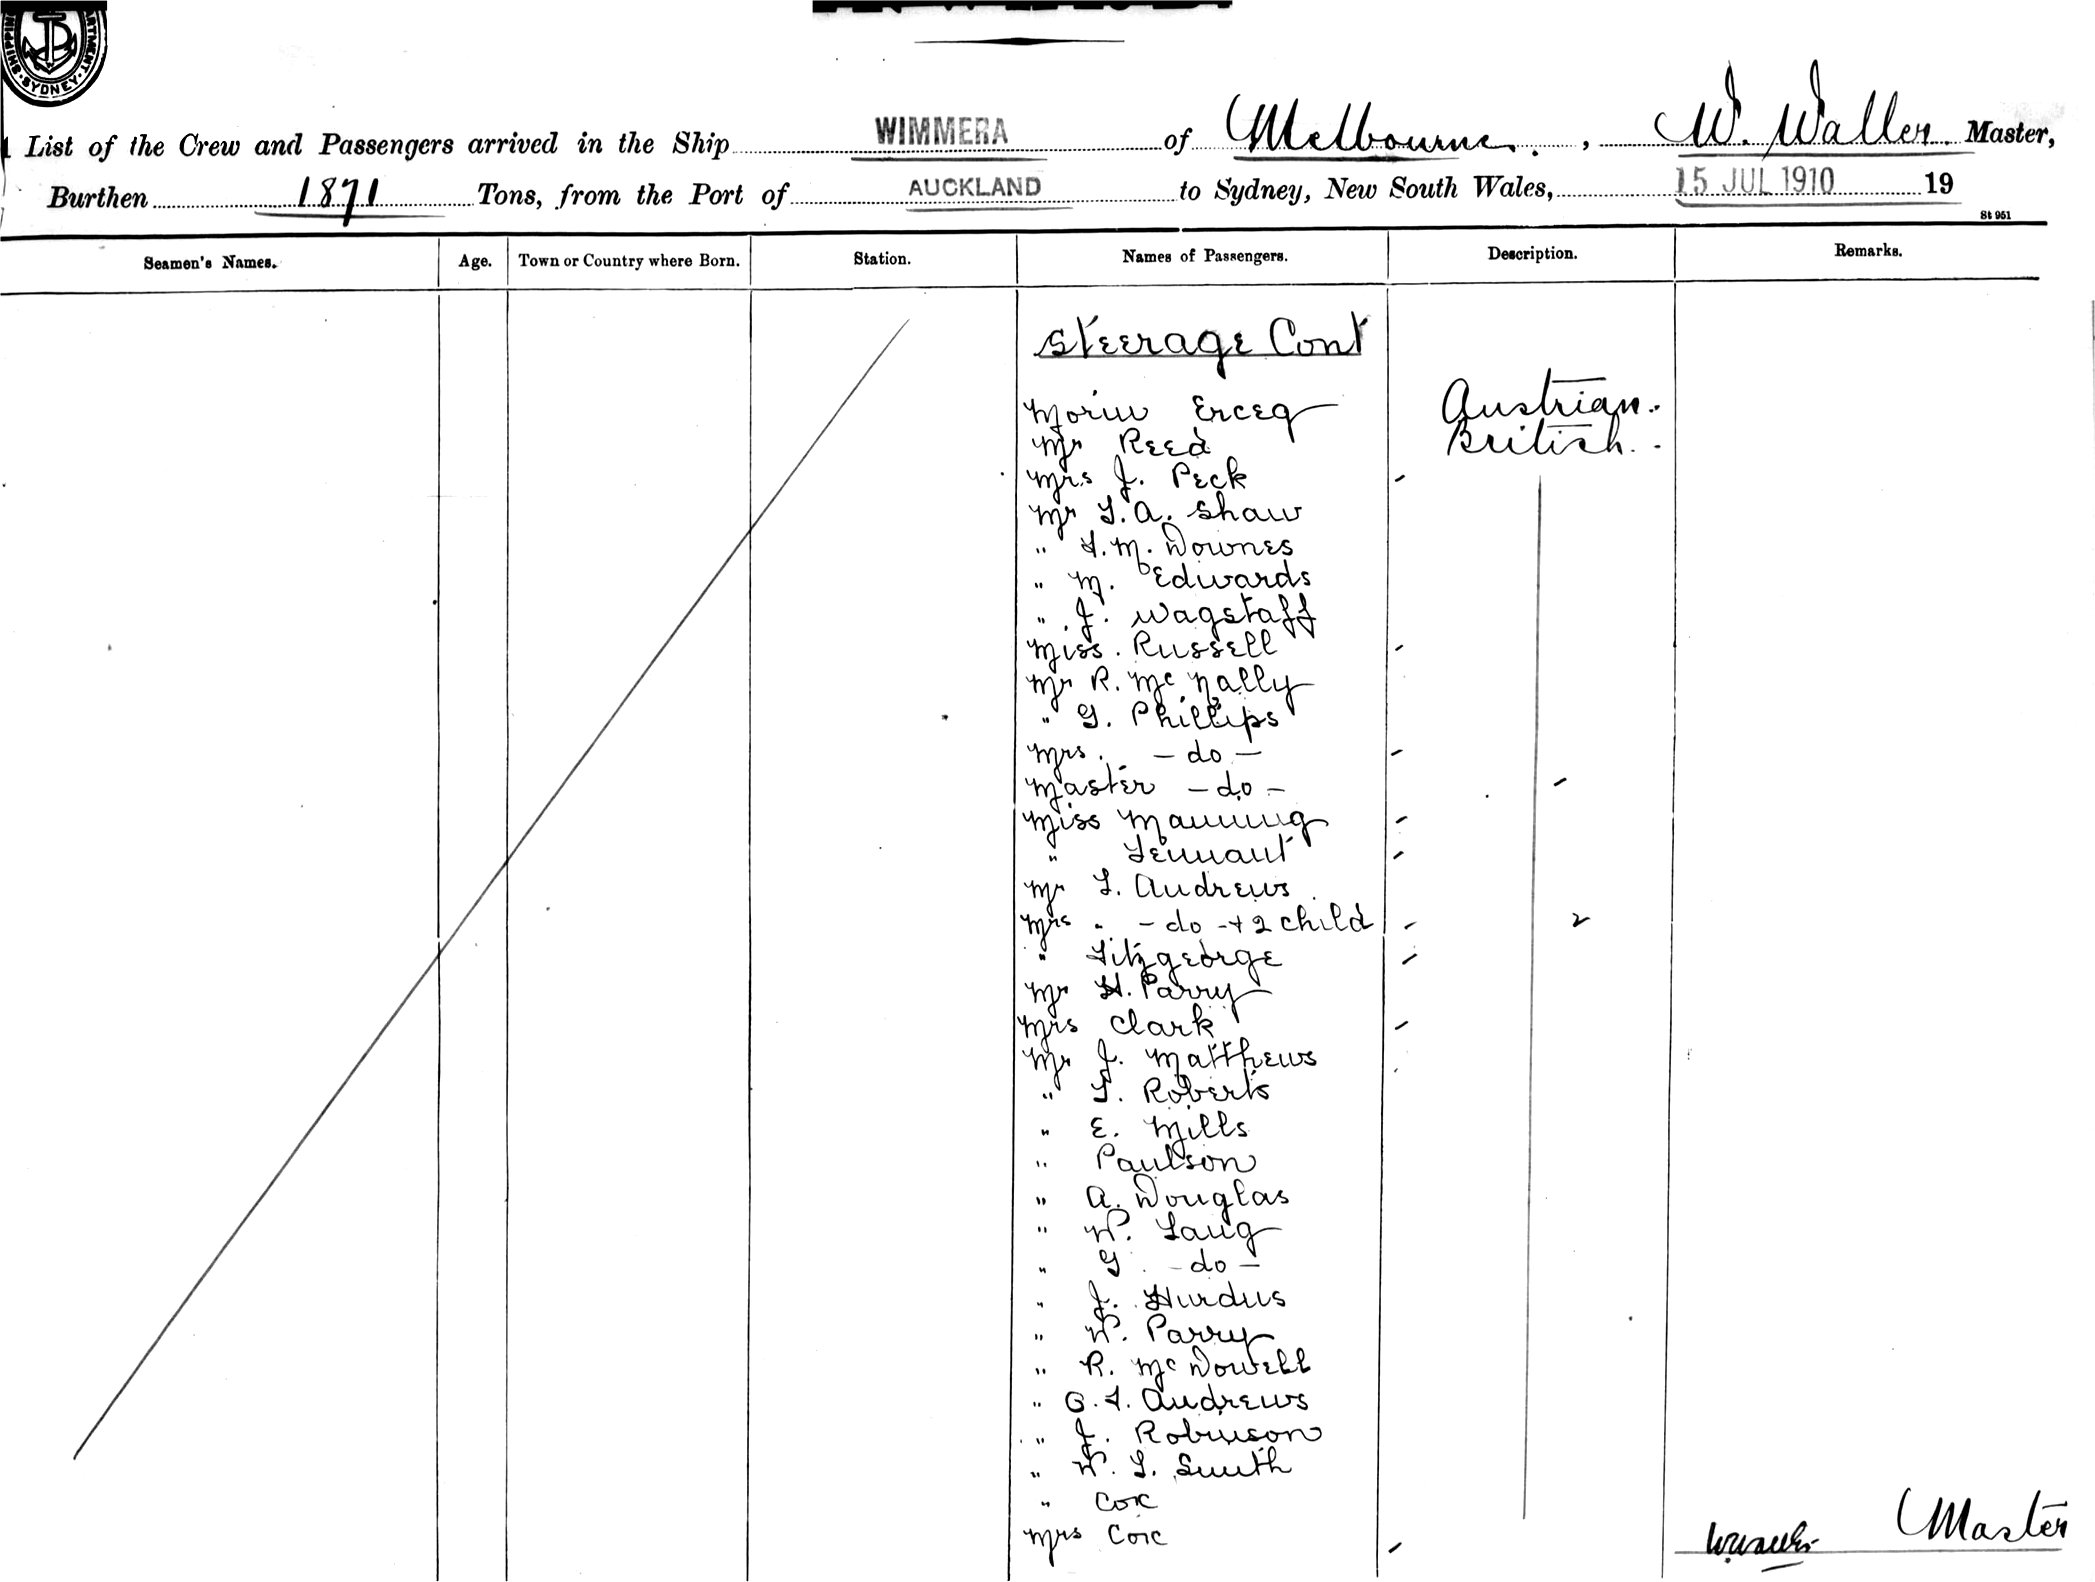 SHIPPIN · SYDNEY · RTMENT.
List of the Crew and Passengers arrived in the Ship WIMMERA of Melbourne. , W. Waller. Master,
Burthen 1871 Tons, from the Port of AUCKLAND to Sydney, New South Wales, 15 JUL 1910 19
St 951
Seamen's Names. Age. Town or Country where Born. Station. Names of Passengers. Description. Remarks.
Steerage Cont
Erceg Austrian.
Mr Reed British.
Mrs J. Peck
Mr T. A. Shaw
" M. Downes
" M. Edwards
" J. Wagstaff
Miss. Russell
Mr R. McNally
" G. Phillips
Mrs. - do -
Master - do -
Miss Manning
" Tennant
Mr Andrews
Mrs " - do - + 2 child 2
" Fitzgeorge
Mr H. Parry
Mrs Clark
Mr J. Matthews
" T. Roberts
" E. Mills
" Paulson
" A. Douglas
" W. Lang
" G. - do -
" J. Hurdus
" W. Parry
" R. McDowell
" Andrews
" J. Robinson
" W. Smith
" Cox
Mrs Cox
Master